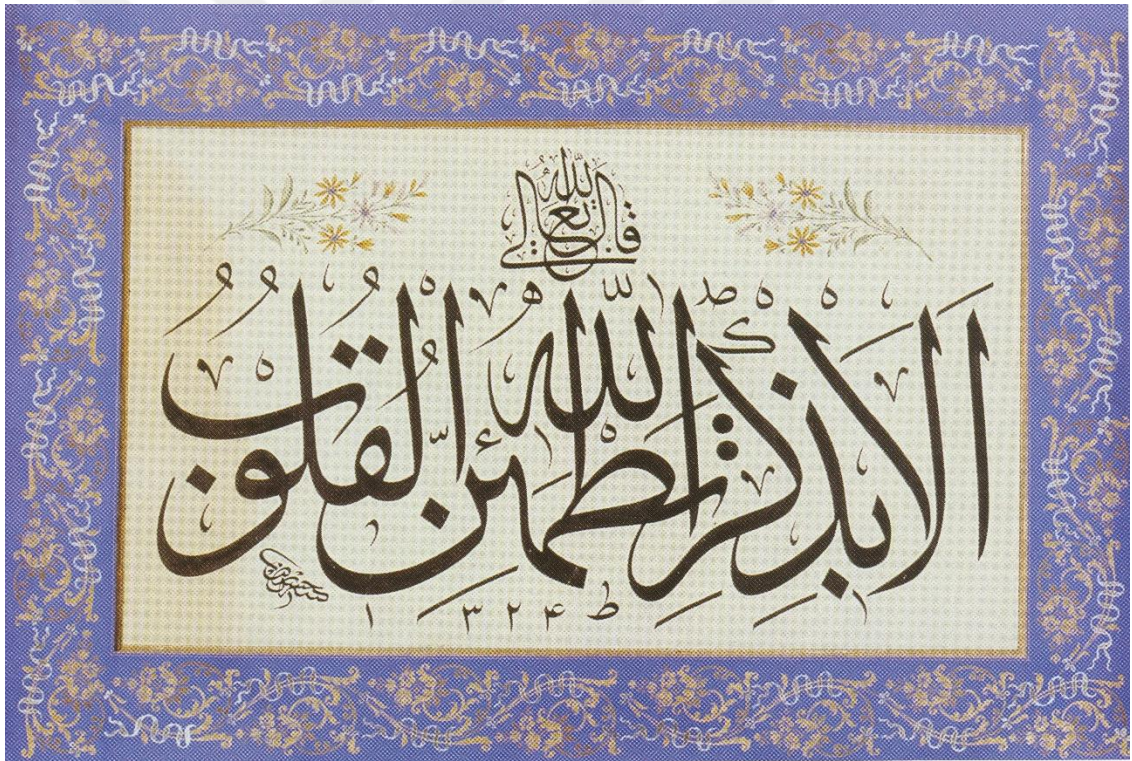 قال الله تعالى
أَلَا بِذِكْرِ اللَّهِ تَطْمَئِنُّ الْقُلُوبُ
١٣٢٤